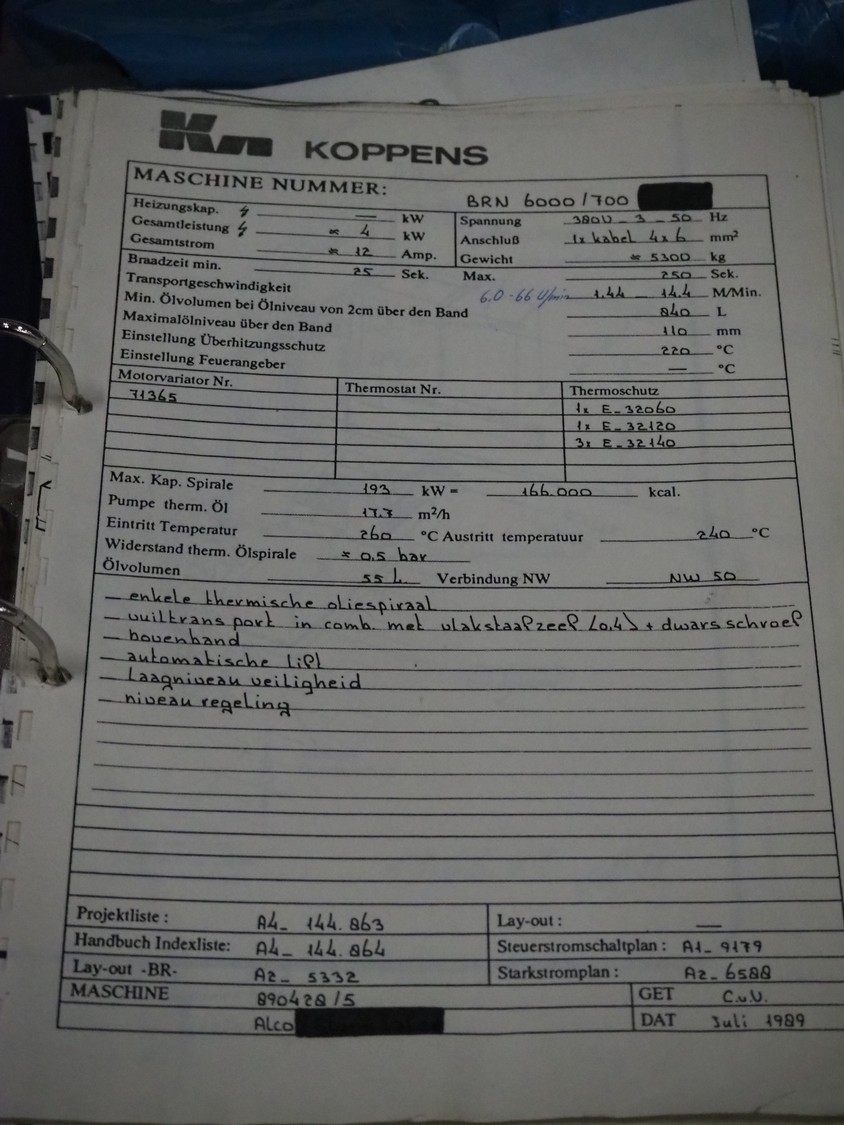 KOPPENS
MASCHINE NUMMER: BRN 6000/700
Heizungskap. — kW Spannung 380V - 3 - 50 Hz
Gesamtleistung ≈ 4 kW Anschluß 1x kabel 4x6 mm²
Gesamtstrom ≈ 12 Amp. Gewicht ≈ 5300 kg
Braadzeit min. 25 Sek. Max. 250 Sek.
Transportgeschwindigkeit 6.0-66 U/min 1.44 - 14.4 M/Min.
Min. Ölvolumen bei Ölniveau von 2cm über den Band 840 L
Maximalölniveau über den Band 110 mm
Einstellung Überhitzungsschutz 220 °C
Einstellung Feuerangeber — °C
Motorvariator Nr. Thermostat Nr. Thermoschutz
71365 1x E-32060
1x E-32120
3x E-32140
Max. Kap. Spirale 193 kW = 166.000 kcal.
Pumpe therm. Öl 17.7 m²/h
Eintritt Temperatur 260 °C Austritt temperatuur 240 °C
Widerstand therm. Ölspirale ≈ 0,5 bar
Ölvolumen 55 L. Verbindung NW NW 50
- enkele thermische oliespiraal
- vuiltransport in comb. met vlakstaafzeef (0,4) + dwarsschroef
- bovenband
- automatische lift
- Laagniveau veiligheid
- niveau regeling
Projektliste : A4- 144.863 Lay-out : —
Handbuch Indexliste: A4- 144.864 Steuerstromschaltplan : A1-9179
Lay-out -BR- A2- 5332 Starkstromplan : A2-6588
MASCHINE 890428/5 GET C.v.V.
Alco DAT Juli 1989